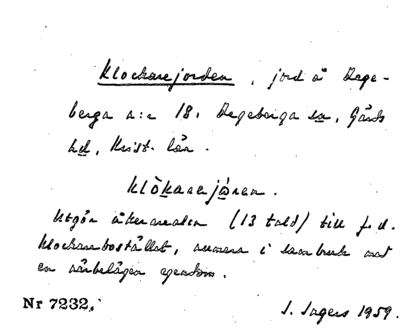 Klockarejorden, jord å Dege-
berga n:r 18, Degeberga sn, Gärds
hd, Krist. län.
klòkarejo̱ren.
Utgör åkermarken (13 tnld) till f.d.
Klockarebostället, numera i sambruk med
en närbelägen egendom.
Nr 7232.
J. Sagers 1959.